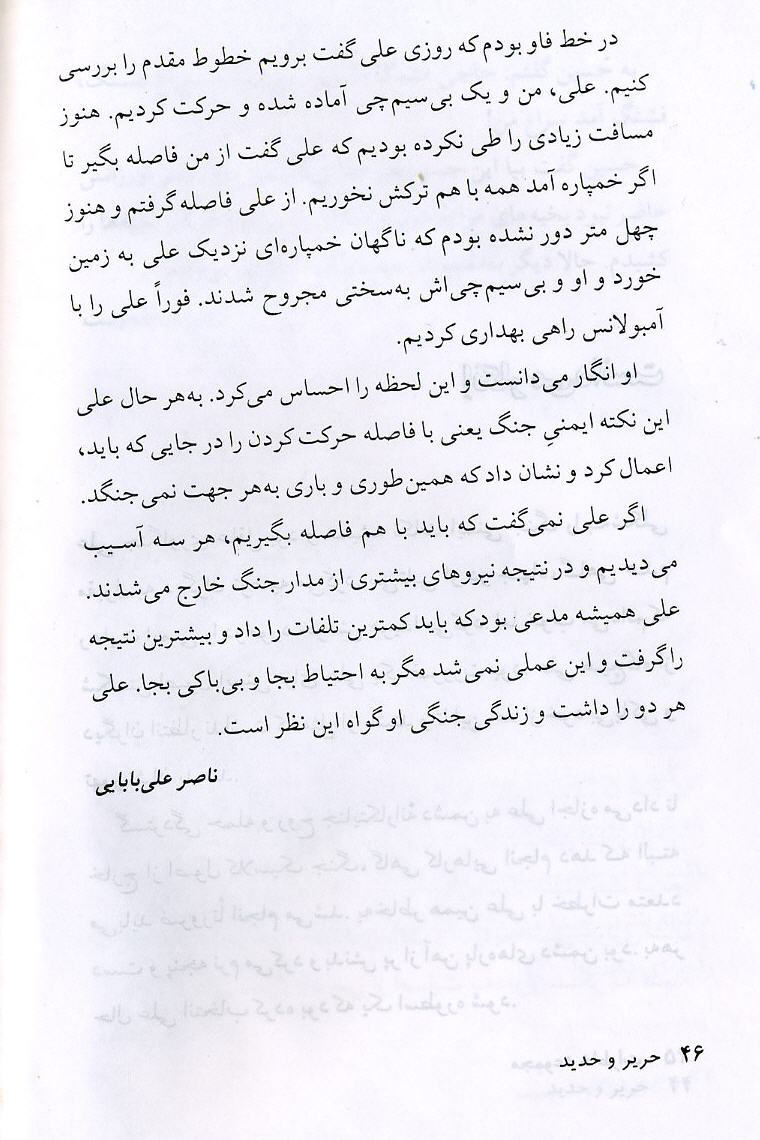 در خط فاو بودم که روزی علی گفت برویم خطوط مقدم را بررسی
کنیم. علی، من و یک بی‌سیم‌چی آماده شده و حرکت کردیم. هنوز
مسافت زیادی را طی نکرده بودیم که علی گفت از من فاصله بگیر تا
اگر خمپاره آمد همه با هم ترکش نخوریم. از علی فاصله گرفتم و هنوز
چهل متر دور نشده بودم که ناگهان خمپاره‌ای نزدیک علی به زمین
خورد و او و بی‌سیم‌چی‌اش به‌سختی مجروح شدند. فوراً علی را با
آمبولانس راهی بهداری کردیم.
او انگار می‌دانست و این لحظه را احساس می‌کرد. به‌هر حال علی
این نکته ایمنیِ جنگ یعنی با فاصله حرکت کردن را در جایی که باید،
اعمال کرد و نشان داد که همین‌طوری و باری به‌هر جهت نمی‌جنگد.
اگر علی نمی‌گفت که باید با هم فاصله بگیریم، هر سه آسیب
می‌دیدیم و در نتیجه نیروهای بیشتری از مدار جنگ خارج می‌شدند.
علی همیشه مدعی بود که باید کمترین تلفات را داد و بیشترین نتیجه
را گرفت و این عملی نمی‌شد مگر به احتیاط بجا و بی‌باکی بجا. علی
هر دو را داشت و زندگی جنگی او گواه این نظر است.
ناصر علی‌بابایی
۴۶ حریر و حدید